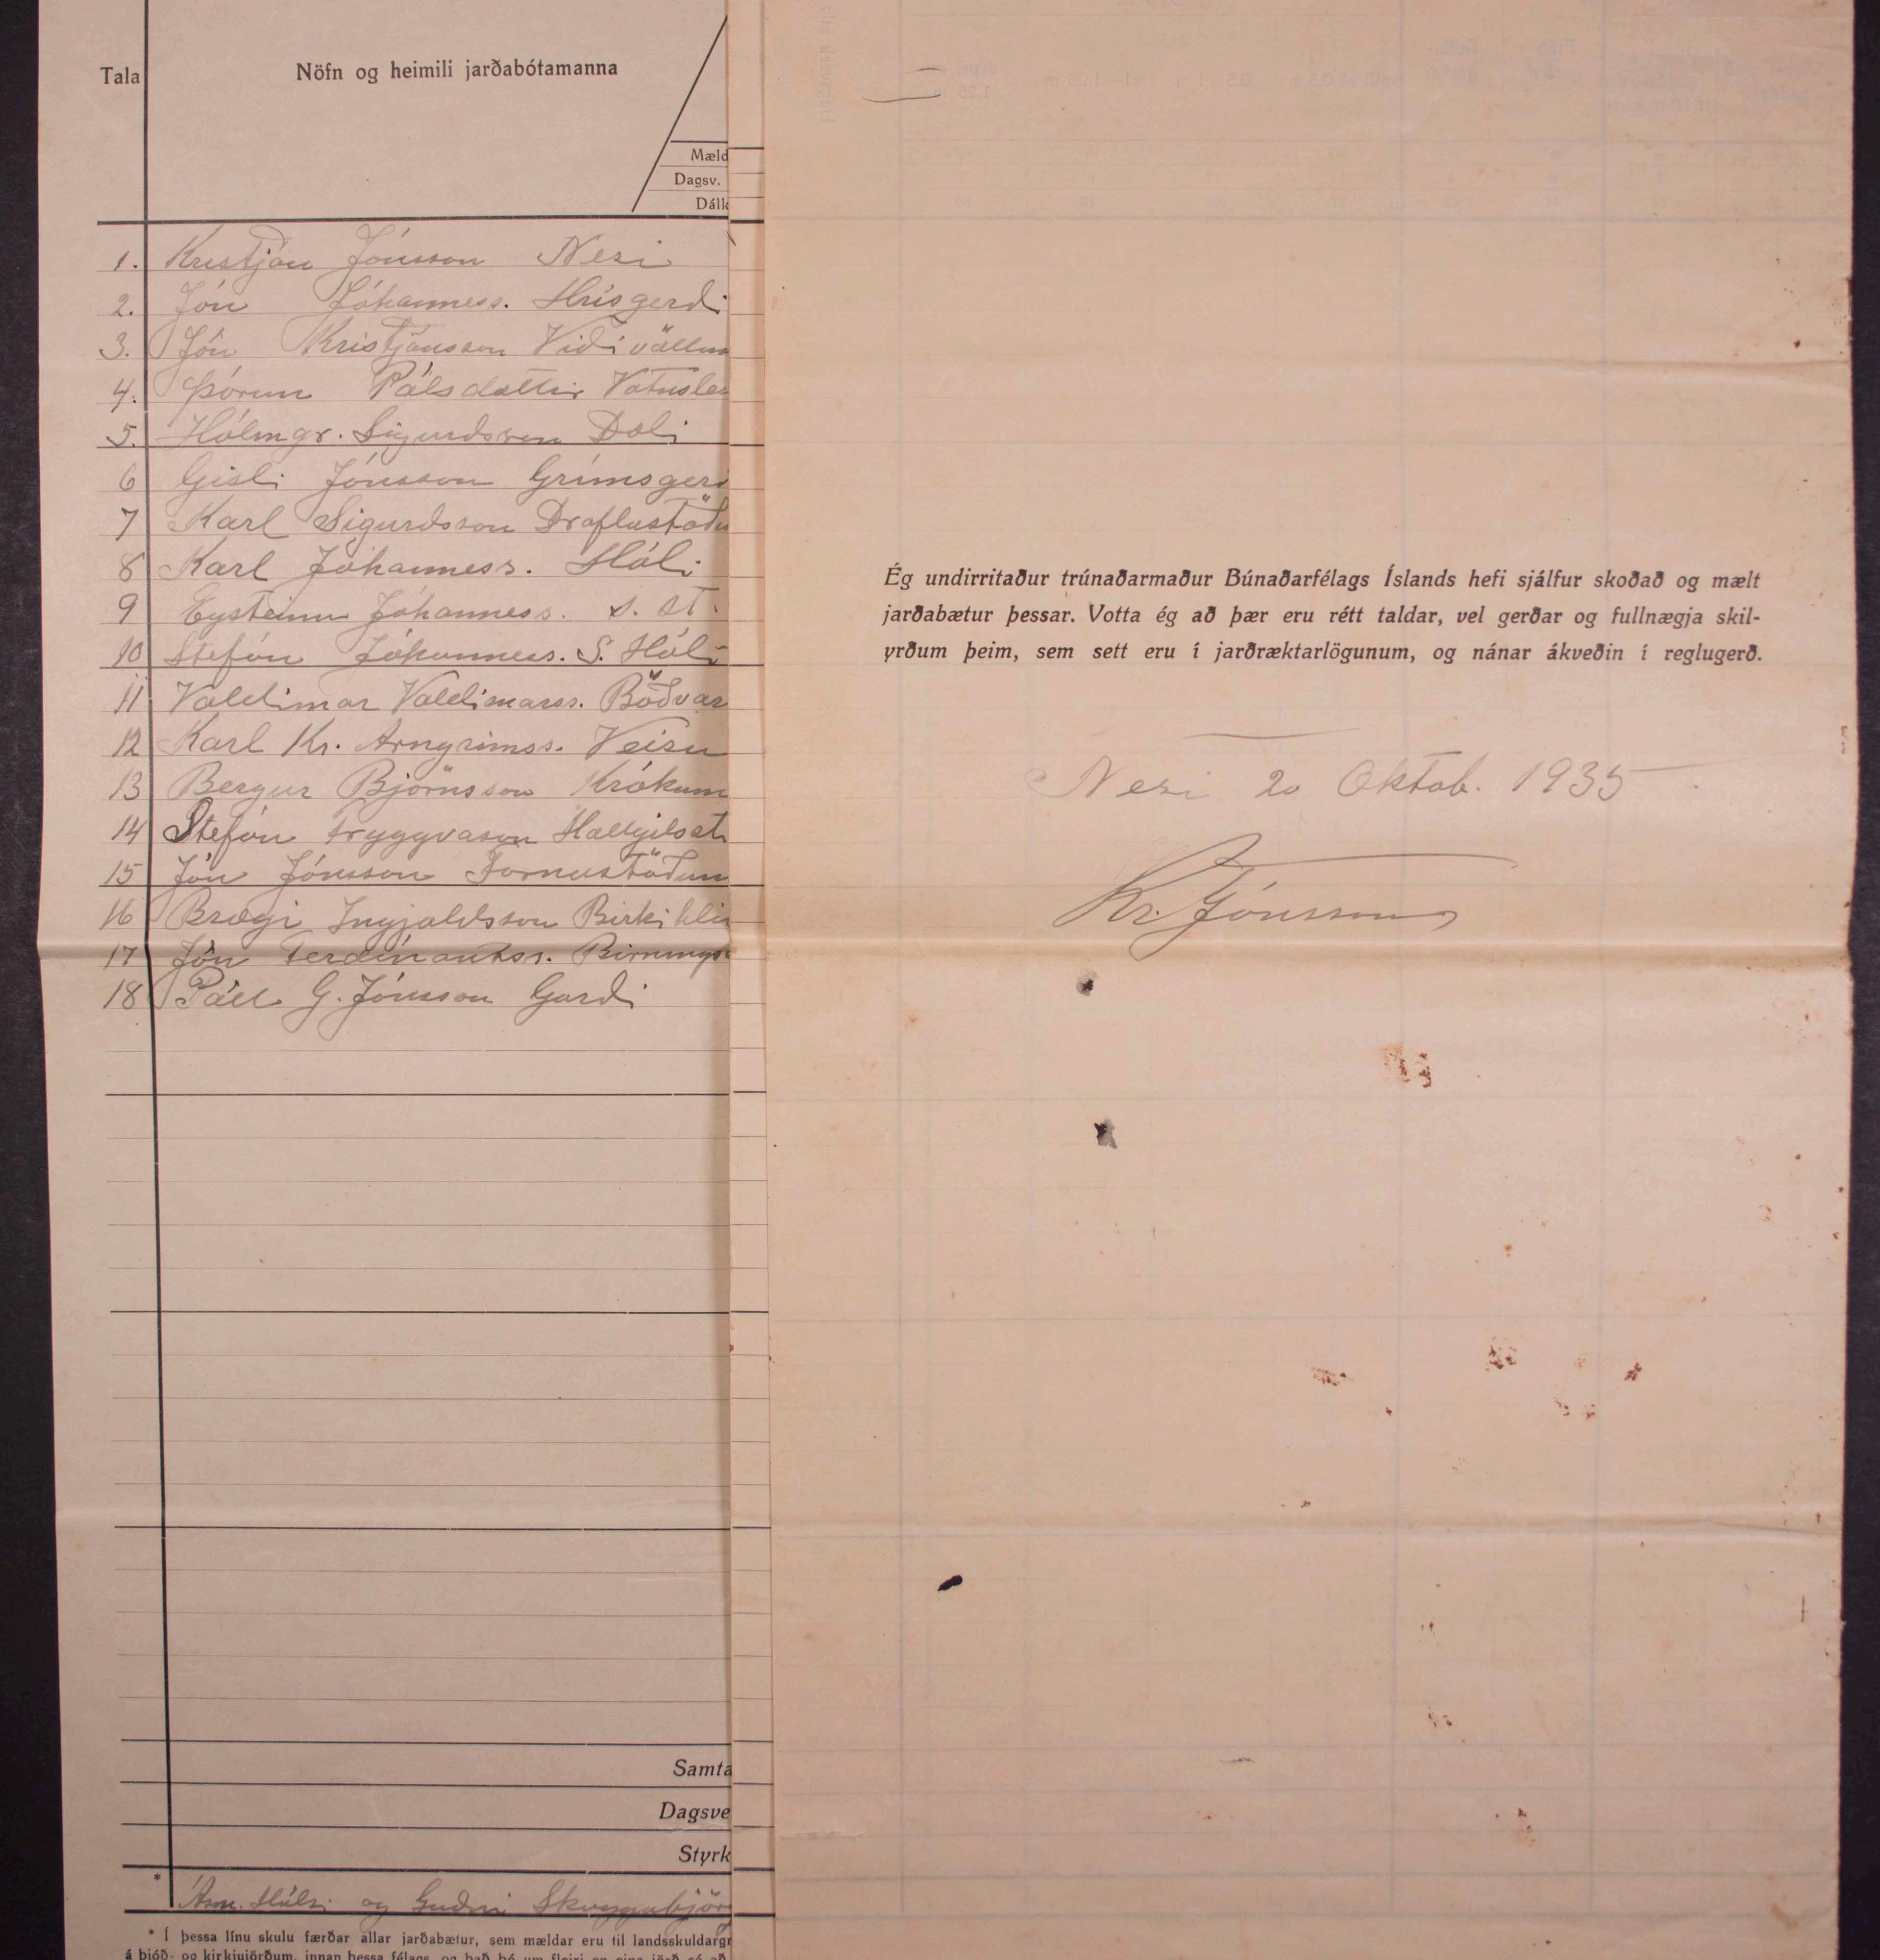 Tala
Nöfn og heimili jarðabótamanna
Mæld
Dagsv.
Dálk
1. Kristján Jónsson Nesi
2. Jón Jóhanness. Hrísgerði
3. Jón Kristjánsson Viðivöllum
4. Þórun Pálsdóttir Vatnslei
5. Hólmgr. Sigurdsson Dali
6 Gisli Jónsson Grímsgerð
7 Karl Sigurdsson Draflastöðu
8 Karl Jóhanness. Hóli
9 Eysteinn Jóhanness. S. st.
10 Stefán Jóhanness. S. Hóli
11 Valdimar Valdimarss. Böðvar
12 Karl Kr. Arngrímss. Veisu
13 Bergur Björnsson Krókum
14 Stefán Tryggvason Hallgilsst
15 Jón Jónsson Fornustöðum
16 Bragi Ingjaldsson Birkihlíð
17 Jón Ferdínantss. Birnings
18 Páll G. Jónsson Garði
Samta
Dagsve
Styrk
* Árm. Hálsi og Guðni Skuggabjör
* Í þessa línu skulu færðar allar jarðabætur, sem mældar eru til landsskuldargr
á þjóð- og kirkjujörðum, innan þessa félags, og það þó um fleiri en eina jörð sé að
Ég undirritaður trúnaðarmaður Búnaðarfélags Íslands hefi sjálfur skoðað og mælt
jarðabætur þessar. Votta ég að þær eru rétt taldar, vel gerðar og fullnægja skil-
yrðum þeim, sem sett eru í jarðræktarlögunum, og nánar ákveðin í reglugerð.
Nesi 20 Oktob. 1935
Kr. Jónsson